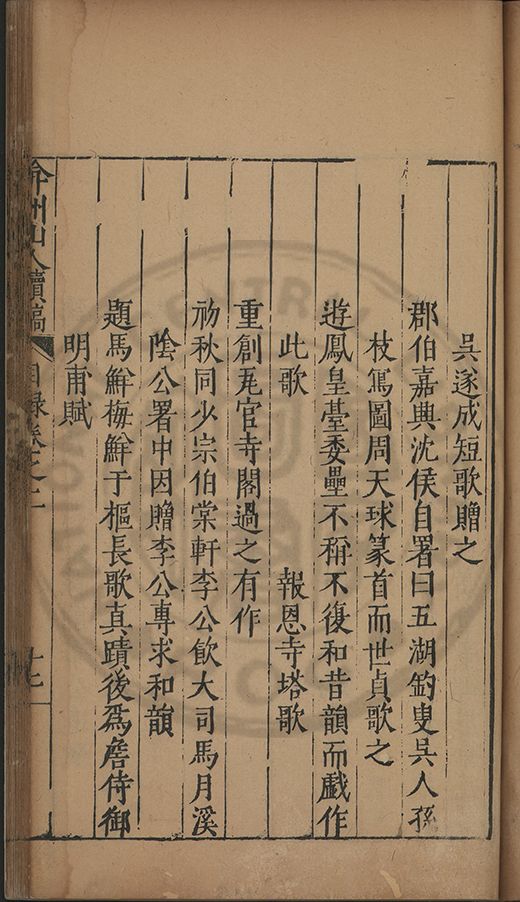 吳遂成短歌贈之
郡伯嘉興沈侯自署曰五湖釣叟吳人孫
枝寫圖周天球篆首而世貞歌之
遊鳳皇臺委壘不稱不復和昔韻而戲作
此歌　報恩寺塔歌
重創瓦官寺閣過之有作
初秋同少宗伯棠軒李公飲大司馬月溪
陰公署中因贈李公專求和韻
題馬鮮梅鮮于樞長歌真蹟後為詹侍御
明甫賦
弇州山人續稿 目錄卷之二